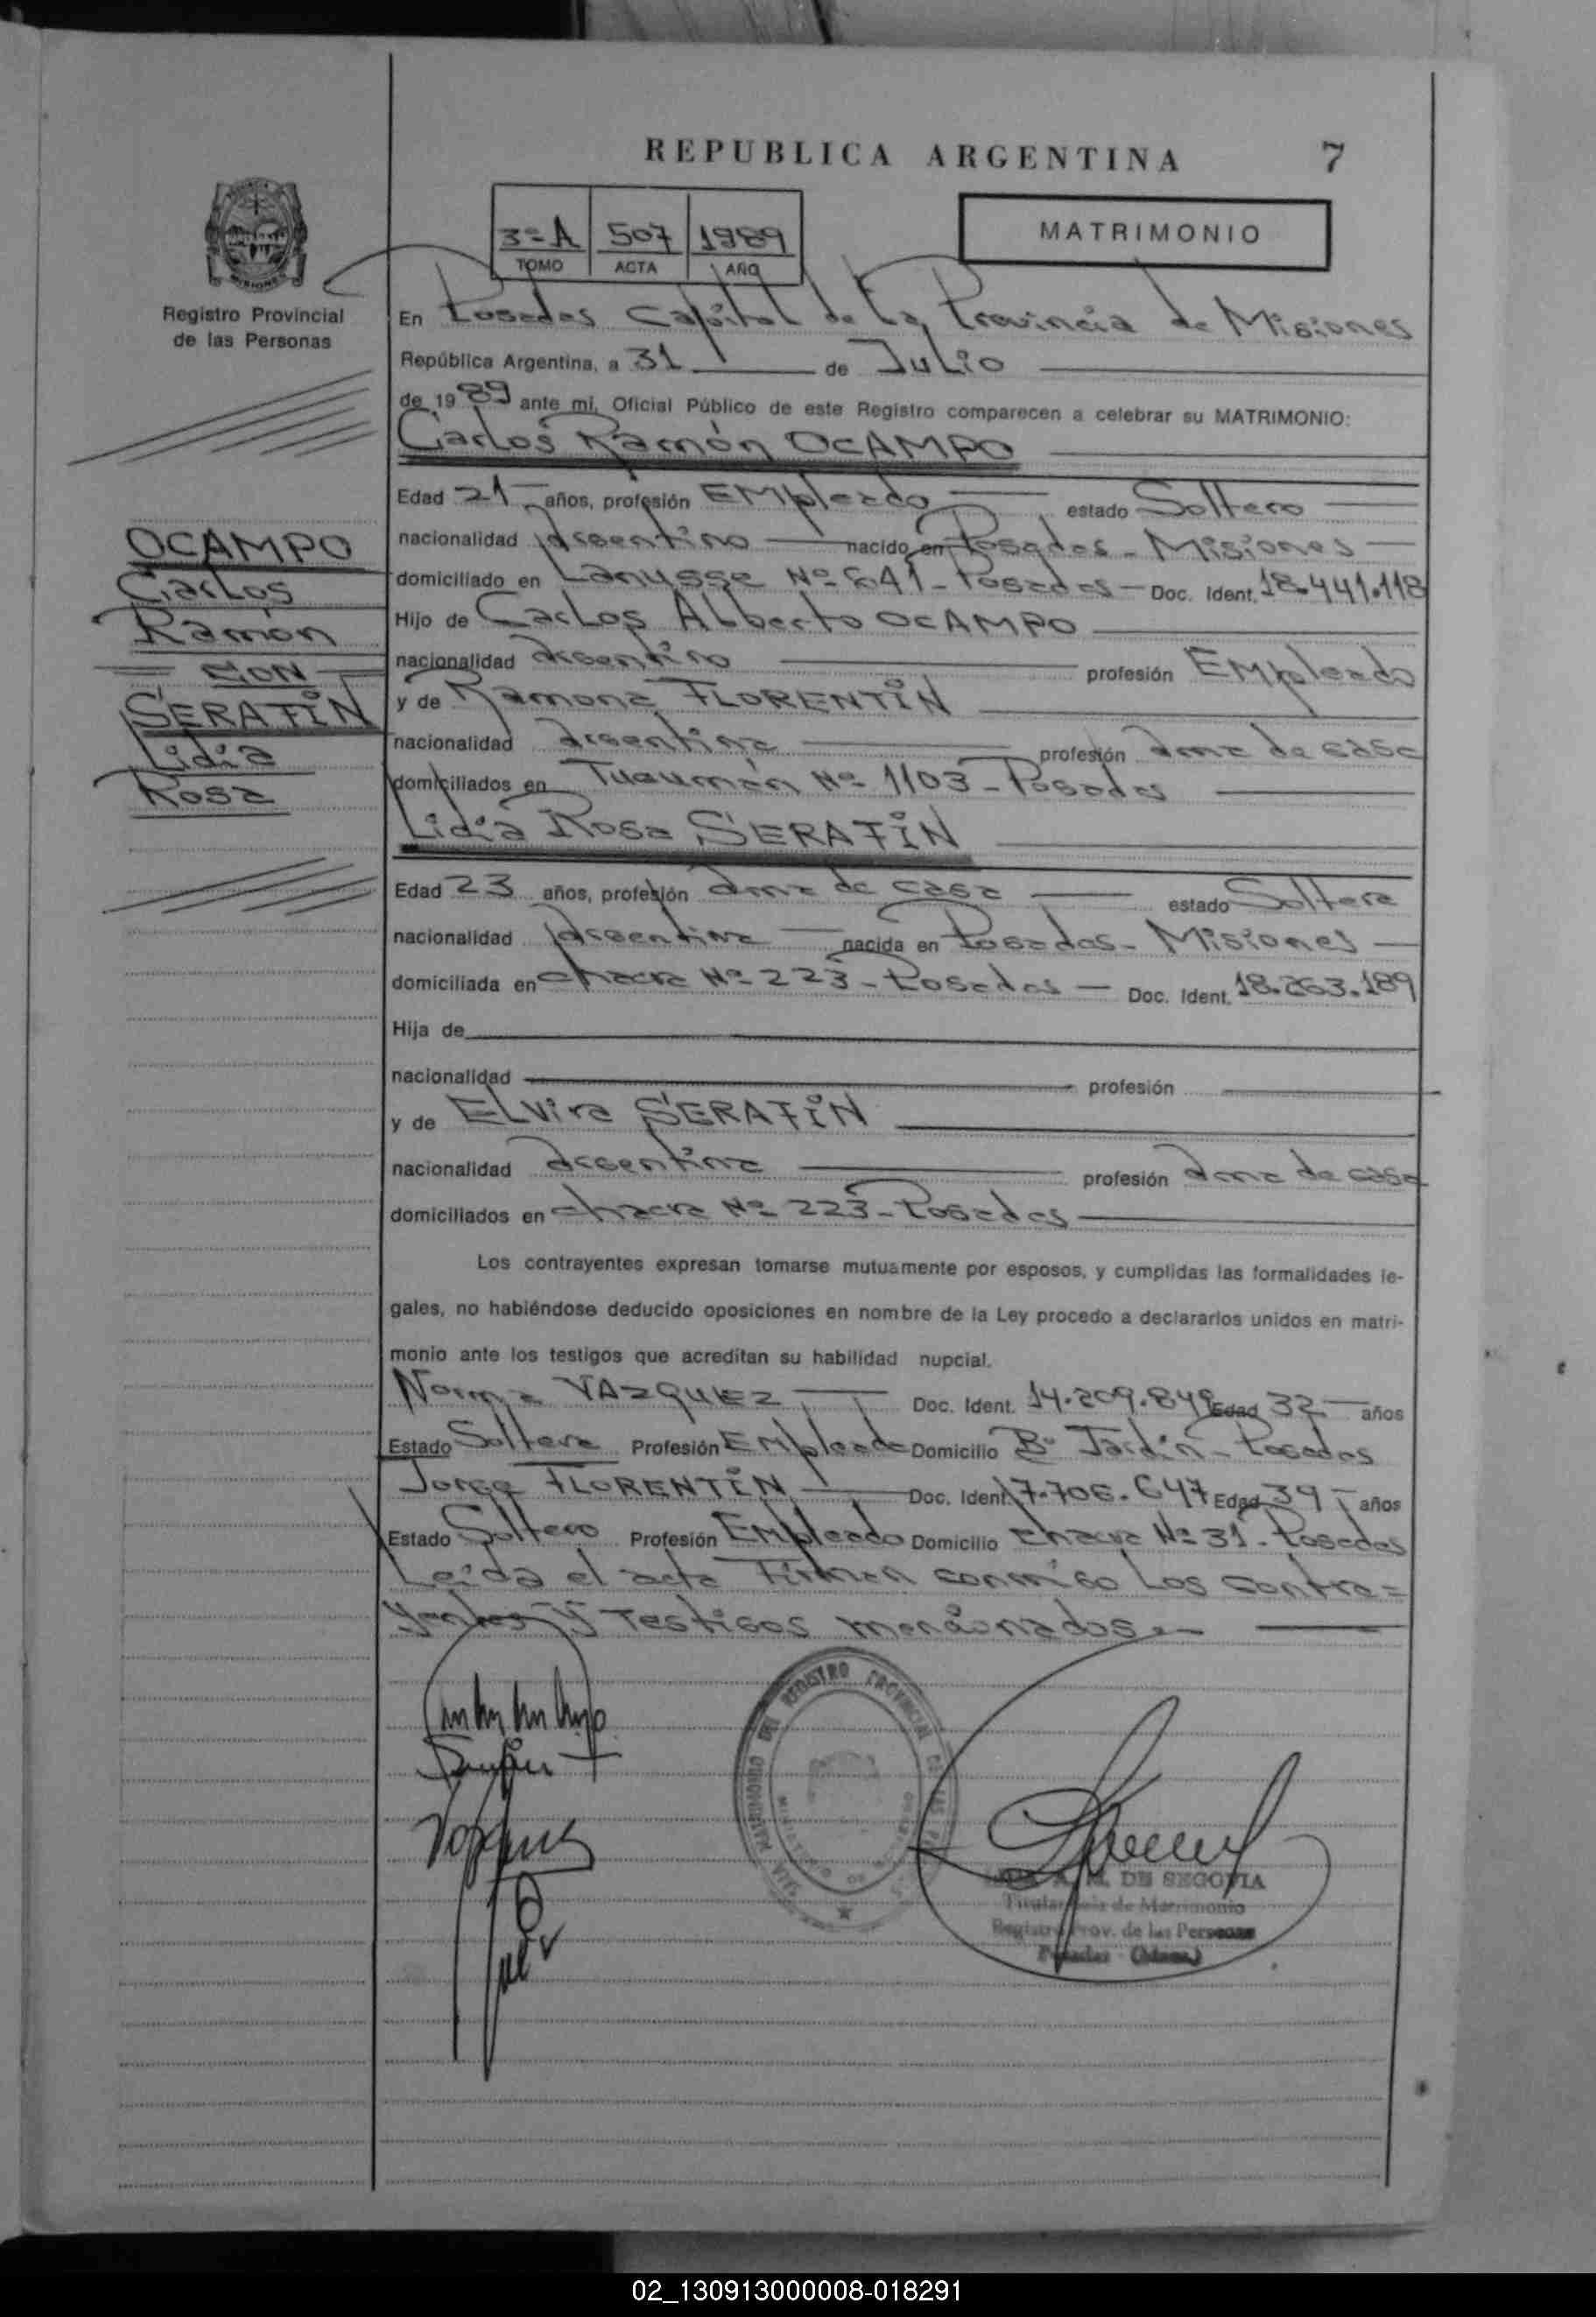 REPUBLICA ARGENTINA 7
3º-A 507 1989
TOMO ACTA AÑO
MATRIMONIO
Registro Provincial
de las Personas
OCAMPO
Carlos
Ramón
CON
SERAFíN
Lidia
Rosa
En Posadas Capital de La Provincia de Misiones
República Argentina, a 31 de Julio
de 1989 ante mi, Oficial Público de este Registro comparecen a celebrar su MATRIMONIO:
Carlos Ramón OCAMPO
Edad 21 años, profesión EMpleado estado Soltero
nacionalidad Argentino nacido en Posadas - Misiones
domiciliado en Lanusse Nº 641 - Posadas - Doc. Ident. 18.441.118
Hijo de Carlos Alberto OCAMPO
nacionalidad argentino profesión EMpleado
y de Ramona FLORENTíN
nacionalidad argentina profesión ama de casa
domiciliados en Tucumán Nº 1103 - Posadas
Lidia Rosa SERAFíN
Edad 23 años, profesión ama de casa estado Soltera
nacionalidad Argentina nacida en Posadas - Misiones
domiciliada en chacra Nº 223 - Posadas - Doc. Ident. 18.263.189
Hija de
nacionalidad profesión
y de ELvira SERAFíN
nacionalidad argentina profesión ama de casa
domiciliados en chacra Nº 223 - Posadas
Los contrayentes expresan tomarse mutuamente por esposos, y cumplidas las formalidades le-
gales, no habiéndose deducido oposiciones en nombre de la Ley procedo a declararlos unidos en matri-
monio ante los testigos que acreditan su habilidad nupcial.
Norma VAZQUEZ Doc. Ident. 14.209.849 Edad 32 años
Estado Soltera Profesión EMpleada Domicilio Bº Jardín - Posadas
Jorge FLORENTíN Doc. Ident. 7.706.647 Edad 39 años
Estado Soltero Profesión EMpleado Domicilio chacra Nº 31 - Posadas
Leída el acta Firman conmigo Los contra=
yentes y Testigos mencionados.-
REGISTRO PROVINCIAL DE LAS
DE SEGOVIA
Titular de Matrimonio
Registro Prov. de las Personas
Posadas (Mnes.)
02_130913000008-018291